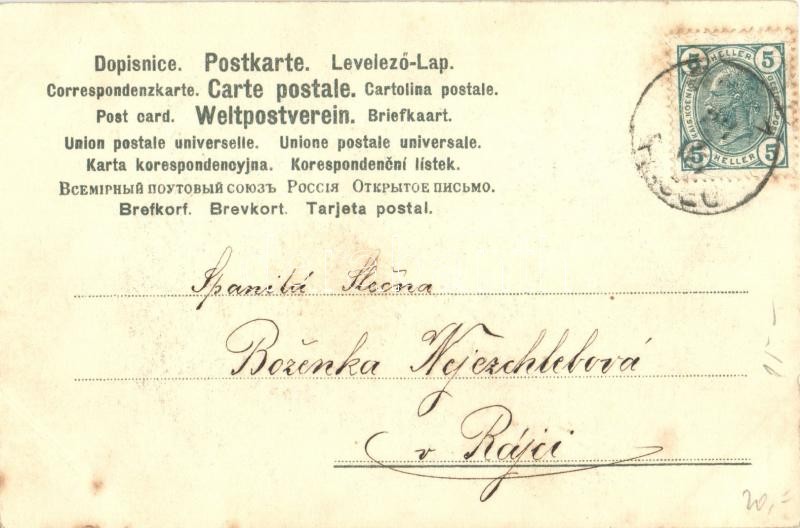 Dopisnice. Postkarte. Levelező-Lap.
Correspondenzkarte. Carte postale. Cartolina postale.
Post card. Weltpostverein. Briefkaart.
Union postale universelle. Unione postale universale.
Karta korespondencyjna. Korespondenční lístek.
Всемірный поутовый союзъ Россія Открытое письмо.
Brefkorf. Brevkort. Tarjeta postal.
5 HELLER 5
5 HELLER 5
Spanilá Slečna
Boženka Nejezchlebová
v Rájci
20,=